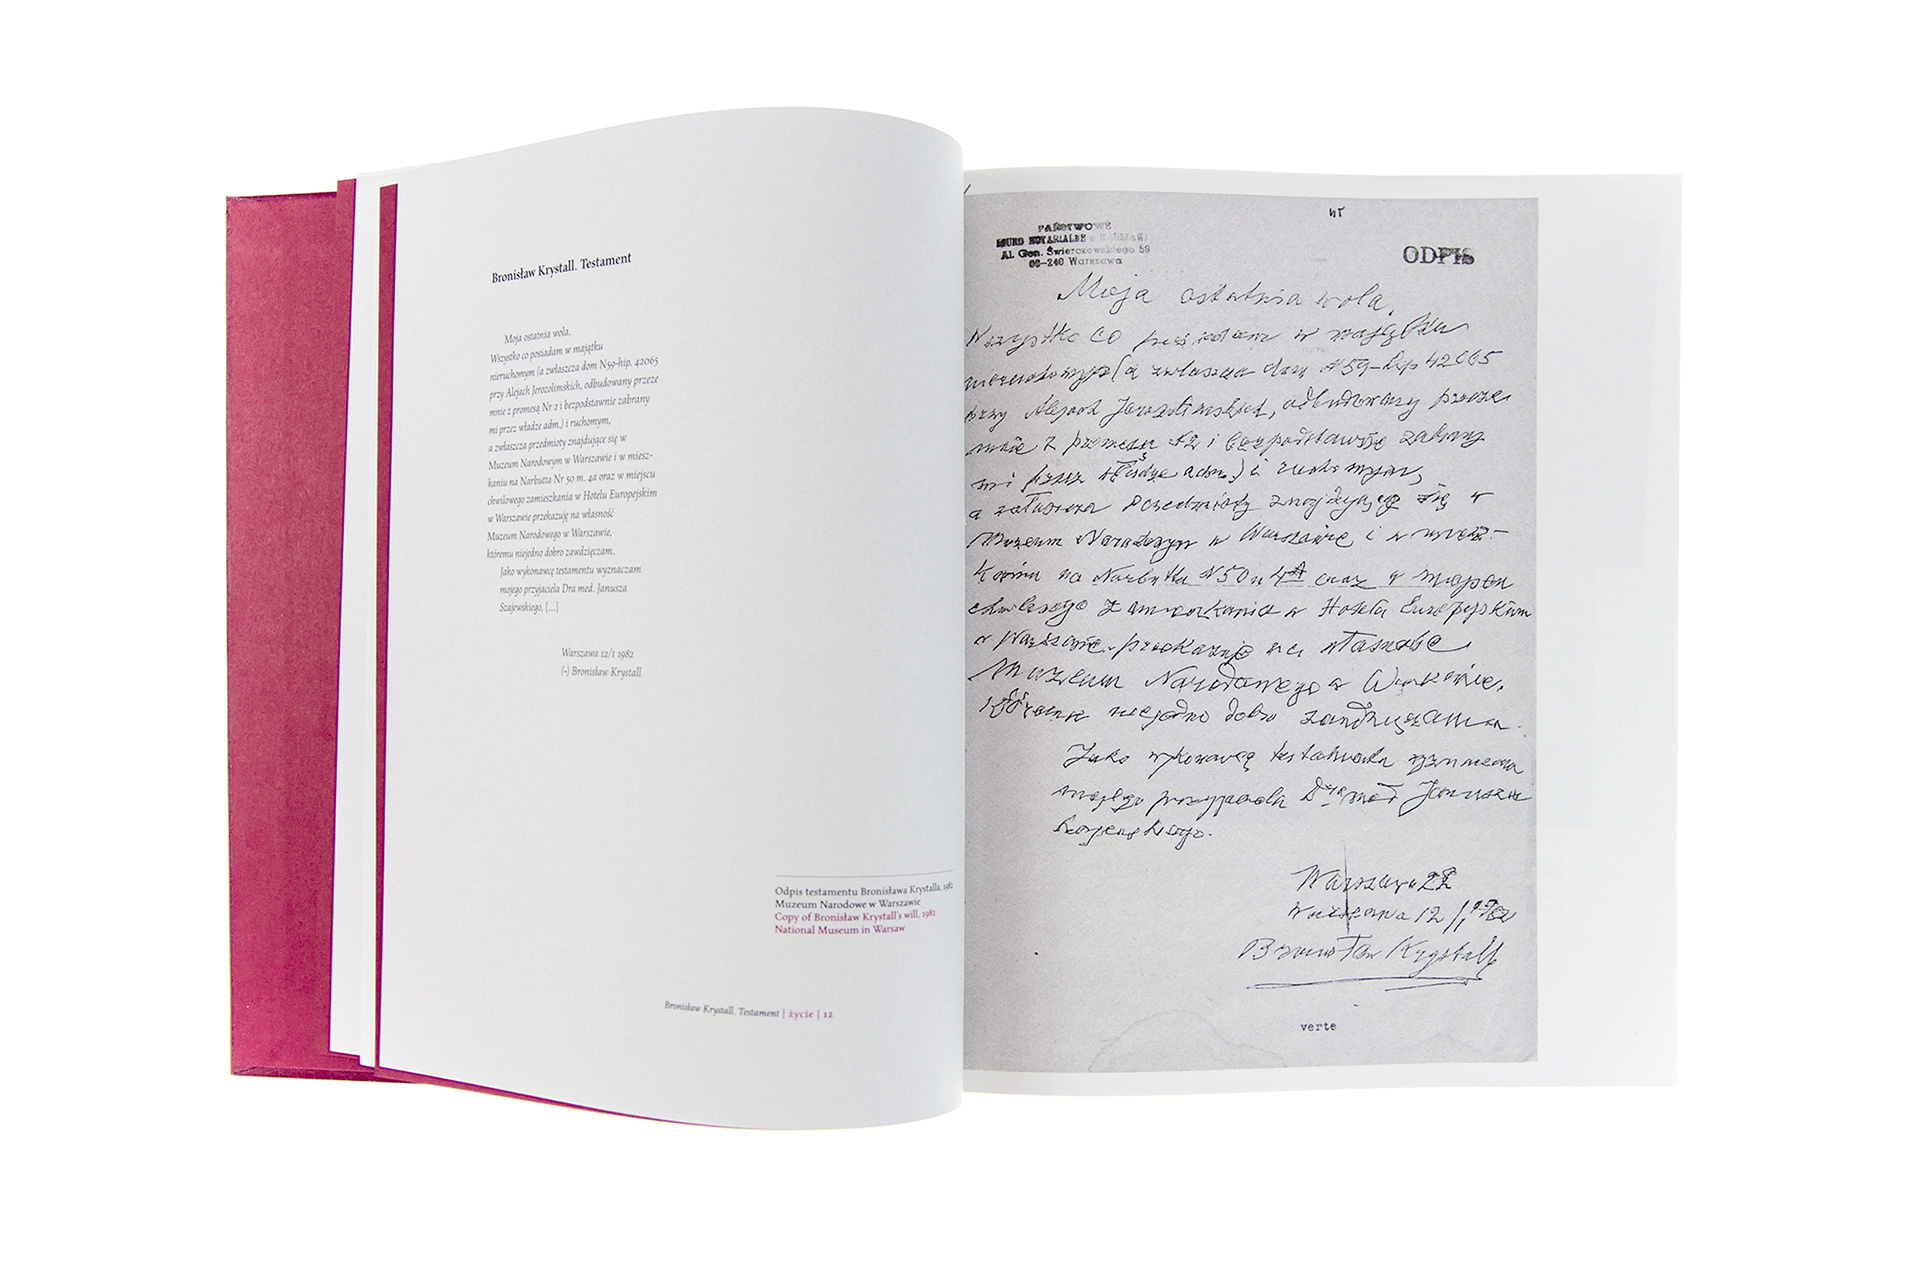 Bronisław Krystall. Testament
Moja ostatnia wola.
Wszystko co posiadam w majątku
nieruchomym (a zwłaszcza dom N59-hip. 42065
przy Alejach Jerozolimskich, odbudowany przeze
mnie z promesą Nr 2 i bezpodstawnie zabrany
mi przez władze adm.) i ruchomym,
a zwłaszcza przedmioty znajdujące się w
Muzeum Narodowym w Warszawie i w miesz-
kaniu na Narbutta Nr 50 m. 4a oraz w miejscu
chwilowego zamieszkania w Hotelu Europejskim
w Warszawie przekazuję na własność
Muzeum Narodowego w Warszawie,
któremu niejedno dobro zawdzięczam.
Jako wykonawcę testamentu wyznaczam
mojego przyjaciela Dra med. Janusza
Szajewskiego, [...]
Warszawa 12/1 1982
(-) Bronisław Krystall
Odpis testamentu Bronisława Krystalla, 1982
Muzeum Narodowe w Warszawie
Copy of Bronisław Krystall's will, 1982
National Museum in Warsaw
Bronisław Krystall. Testament | życie | 12
PAŃSTWOWE
BIURO NOTARIALNE w WARSZAWIE
Al. Gen. Świerczewskiego 58
00-240 Warszawa
ODPIS
Moja ostatnia wola.
Wszystko co posiadam w majątku
nieruchomym (a zwłaszcza dom N59-hip 42065
przy Alejach Jerozolimskich, odbudowany przeze
mnie z promesą N2 i bezpodstawnie zabrany
mi przez władze adm.) i ruchomym,
a zwłaszcza przedmioty znajdujące się w
Muzeum Narodowym w Warszawie i w miesz-
kaniu na Narbutta N50 m 4A oraz w miejscu
chwilowego zamieszkania w Hotelu Europejskim
w Warszawie przekazuję na własność
Muzeum Narodowego w Warszawie,
któremu niejedno dobro zawdzięczam.
Jako wykonawcę testamentu wyznaczam
mojego przyjaciela Dra med Janusza
Warszawa
Warszawa 12/1 1982
Bronisław Krystall
verte